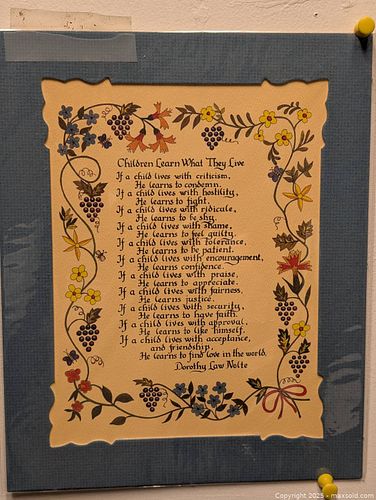 Children Learn What They Live
If a child lives with criticism,
He learns to condemn.
If a child lives with hostility,
He learns to fight.
If a child lives with ridicule,
He learns to be shy.
If a child lives with shame,
He learns to feel guilty.
If a child lives with tolerance,
He learns to be patient.
If a child lives with encouragement,
He learns confidence.
If a child lives with praise,
He learns to appreciate.
If a child lives with fairness,
He learns justice.
If a child lives with security,
He learns to have faith.
If a child lives with approval,
He learns to like himself.
If a child lives with acceptance,
and friendship,
He learns to find love in the world.
Dorothy Law Nolte
Copyright 2025 - maxsold.com